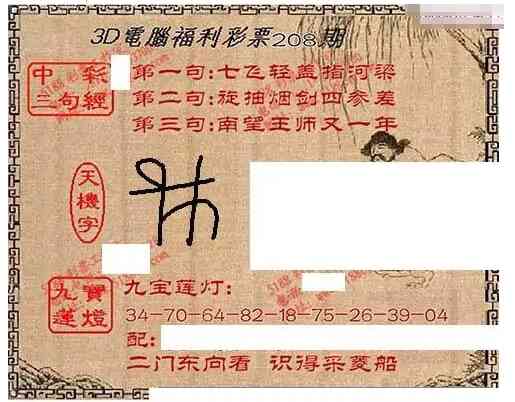 3D電腦福利彩票208期
中彩
三句經
第一句:七飞轻盖指河梁
第二句:旋抽烟剑四参差
第三句:南望王师又一年
天機字
九寶
蓮燈
九宝莲灯:
34-70-64-82-18-75-26-39-04
配:
二门东向看 识得采菱船